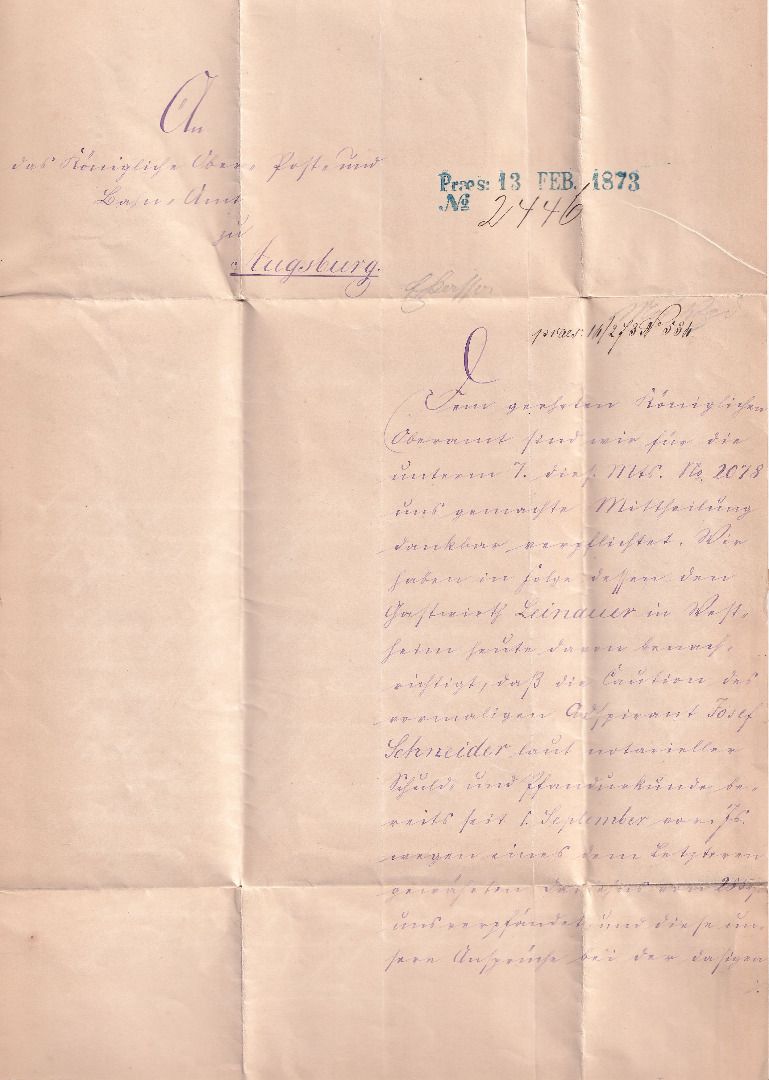 An
das Königliche Ober- Post- und
Bahn-Amt
zu
Augsburg.
Præs: 13 FEB. 1873
No 2446
praes: 14/2 73 No 584
Dem geehrten Königlichen
Oberamt sind wir für die
unterm 7. dies. Mts. No. 2078
uns gemachte Mittheilung
dankbar verpflichtet. Wir
haben in Folge dessen den
Gastwirth Leinauer in West-
heim heute davon benach-
richtigt, daß die Caution des
vormaligen Adspirant Josef
Schneider laut notarieller
Schuld- und Pfandurkunde be-
reits seit 1. September vor. Js.
wegen eines dem Letzteren
gewährten Darlehens von
uns verpfändet und diese un-
sere Ansprüche bei der dasigen